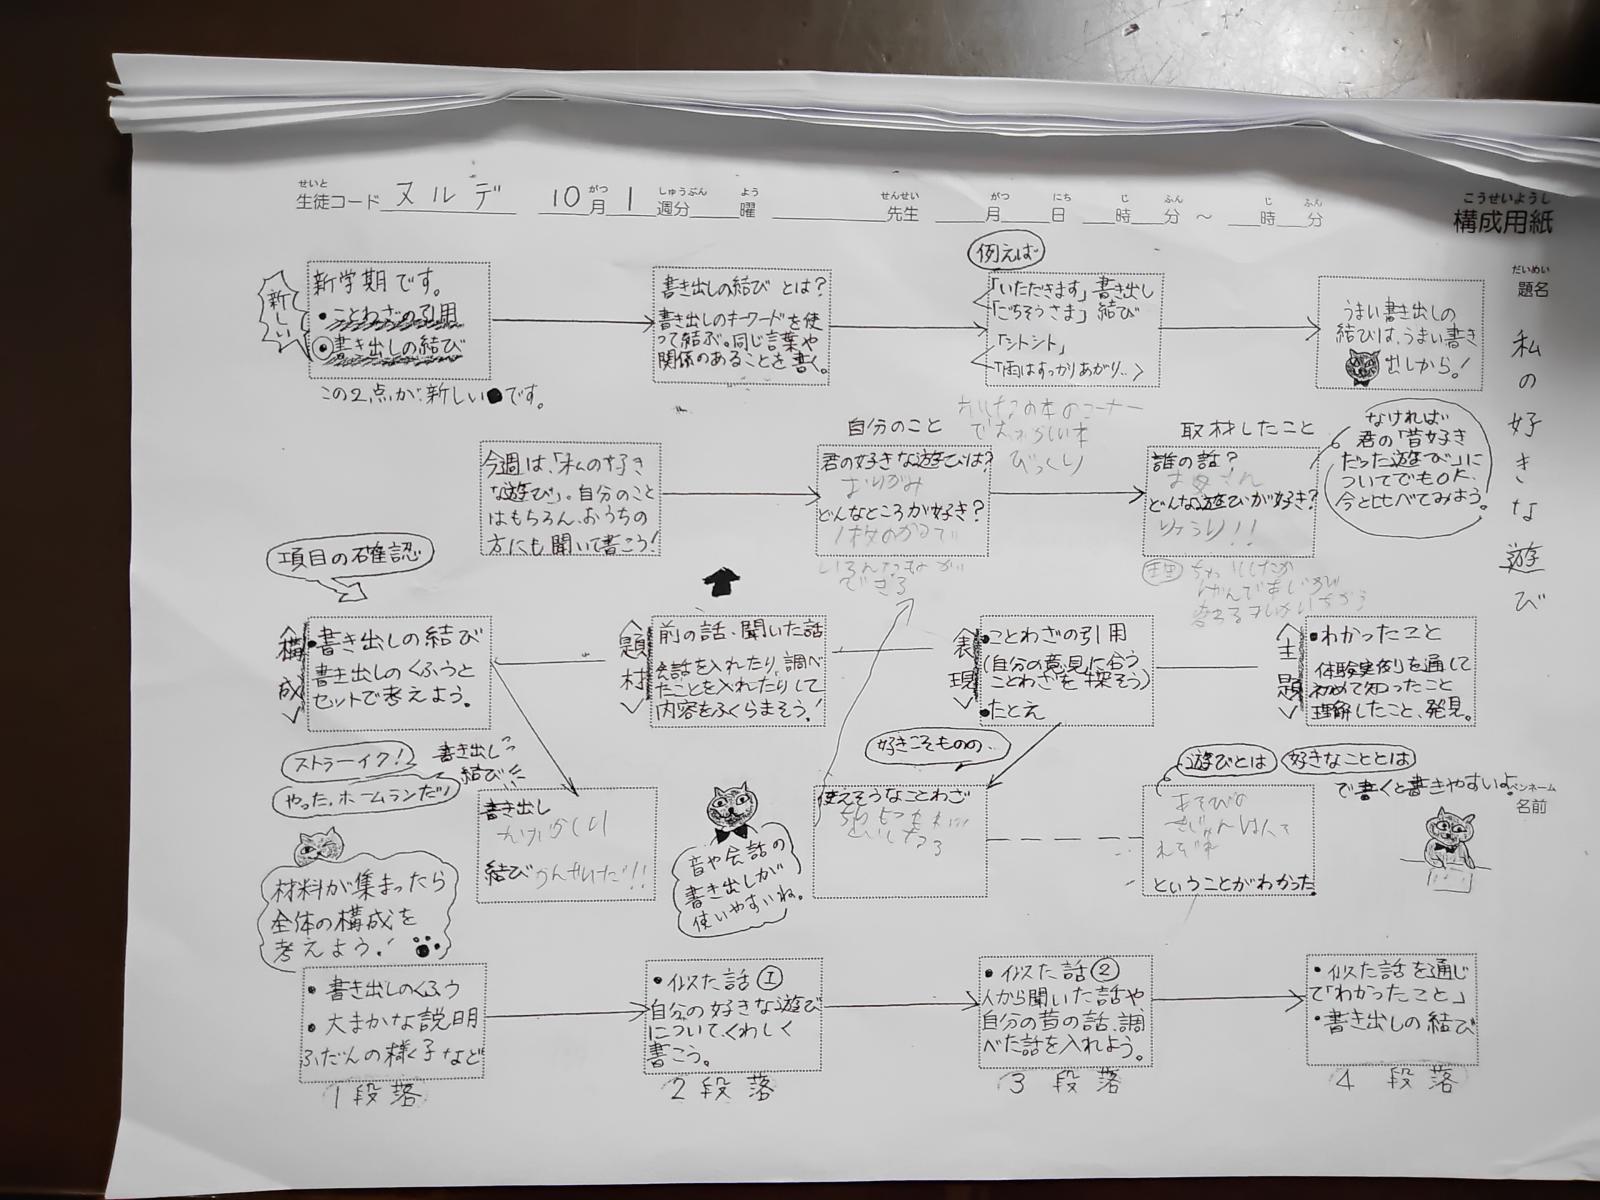 せいと
生徒コード ヌルデ 10月 1週分 曜 先生 月 日 時 分 ～ 時 分
がつ しゅうぶん よう せんせい がつ にち じ ふん じ ふん
こうせいようし
構成用紙
だいめい
題名
私の好きな遊び
ペンネーム
名前
新しい
新学期です。
・ことわざの引用
書き出しの結び
この2点が新しい●です。
書き出しの結びとは?
書き出しのキーワードを使
って結ぶ。同じ言葉や
関係のあることを書く。
例えば
「いただきます」書き出し
「ごちそうさま」結び
「シトシト」
「雨はすっかりあがり…
うまい書き出しの
結びは、うまい書き
出しから!
今週は、「私の好き
な遊び」。自分のこと
はもちろん、おうちの
方にも聞いて書こう!
自分のこと
君の好きな遊びは?
おりがみ
どんなところが好き?
1枚のかみで
いろんなものが
できる
びっくり
取材したこと
誰の話?
お母さん
どんな遊びが好き?
りょうり!!
なければ
君の「昔好き
だった遊び」に
ついてでもOK。
今と比べてみよう。
項目の確認
〈構成〉
・書き出しの結び
書き出しのくふうと
セットで考えよう。
〈題材〉
前の話・聞いた話
会話を入れたり、調べ
たことを入れたりして
内容をふくらまそう!
〈表現〉
・ことわざの引用
(自分の意見に合う
ことわざを探そう)
・たとえ
〈主題〉
・わかったこと
体験実例を通して
初めて知ったこと
理解したこと、発見。
ストラーイク!
やった、ホームランだ!
書き出し
結び
書き出し
結び かんせいだ!!
音や会話の
書き出しが
使いやすいね。
好きこそものの…
使えそうなことわざ
遊びとは
好きなこととは
で書くと書きやすいよ。
あそびの
ということがわかった。
材料が集まったら
全体の構成を
考えよう!
・書き出しのくふう
・大まかな説明
ふだんの様子など
1段落
・似た話①
自分の好きな遊び
について、くわしく
書こう。
2段落
・似た話②
人から聞いた話や、
自分の昔の話、調
べた話を入れよう。
3段落
・似た話を通じ
て「わかったこと」
・書き出しの結び
4段落